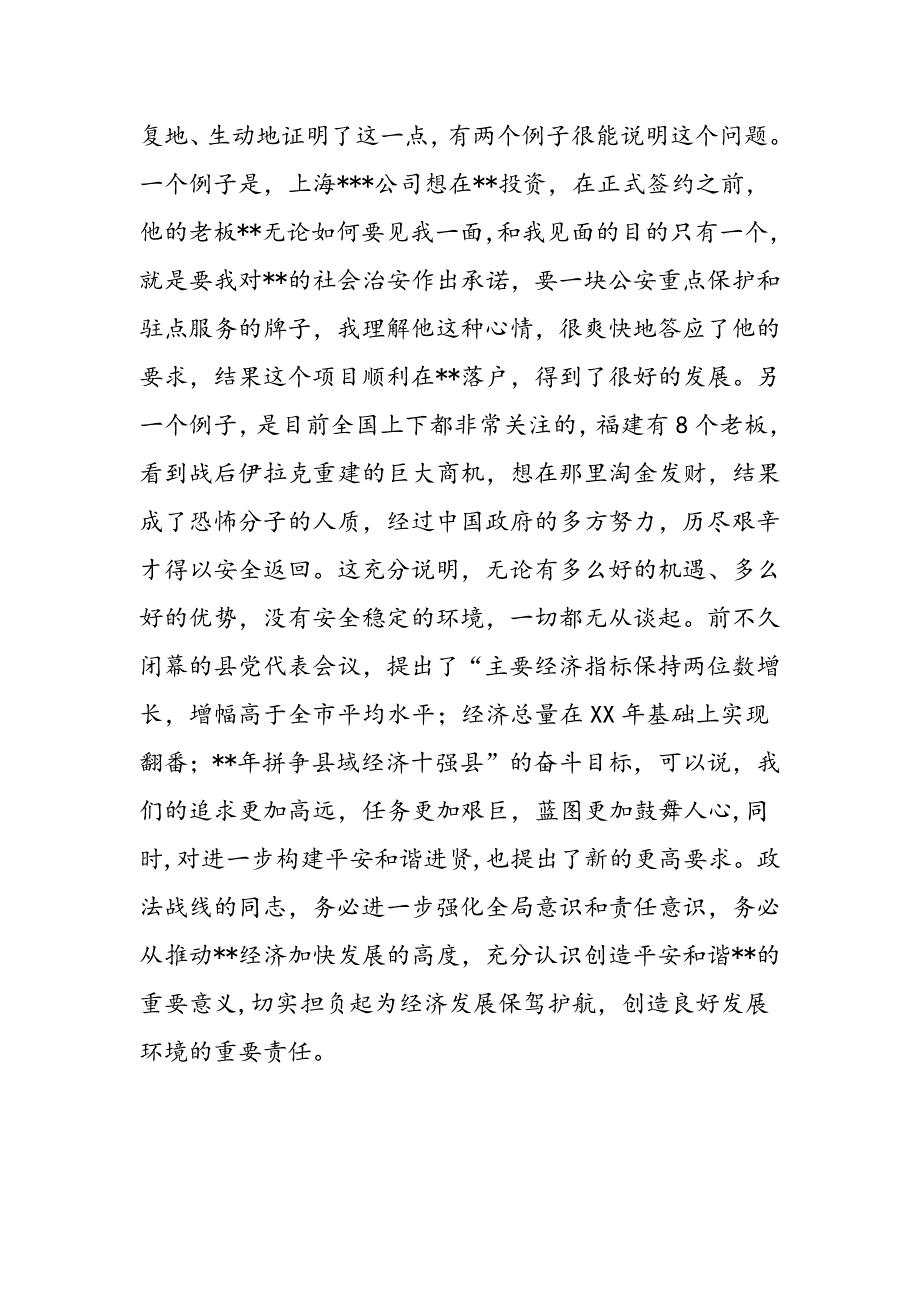 复地、生动地证明了这一点，有两个例子很能说明这个问题。
一个例子是，上海***公司想在**投资，在正式签约之前，
他的老板**无论如何要见我一面,和我见面的目的只有一个，
就是要我对**的社会治安作出承诺，要一块公安重点保护和
驻点服务的牌子，我理解他这种心情，很爽快地答应了他的
要求，结果这个项目顺利在**落户，得到了很好的发展。另
一个例子，是目前全国上下都非常关注的，福建有8个老板，
看到战后伊拉克重建的巨大商机，想在那里淘金发财，结果
成了恐怖分子的人质，经过中国政府的多方努力，历尽艰辛
才得以安全返回。这充分说明，无论有多么好的机遇、多么
好的优势，没有安全稳定的环境，一切都无从谈起。前不久
闭幕的县党代表会议，提出了“主要经济指标保持两位数增
长，增幅高于全市平均水平；经济总量在XX年基础上实现
翻番；**年拼争县域经济十强县”的奋斗目标，可以说，我
们的追求更加高远，任务更加艰巨，蓝图更加鼓舞人心,同
时,对进一步构建平安和谐进贤,也提出了新的更高要求。政
法战线的同志，务必进一步强化全局意识和责任意识，务必
从推动**经济加快发展的高度，充分认识创造平安和谐**的
重要意义,切实担负起为经济发展保驾护航，创造良好发展
环境的重要责任。